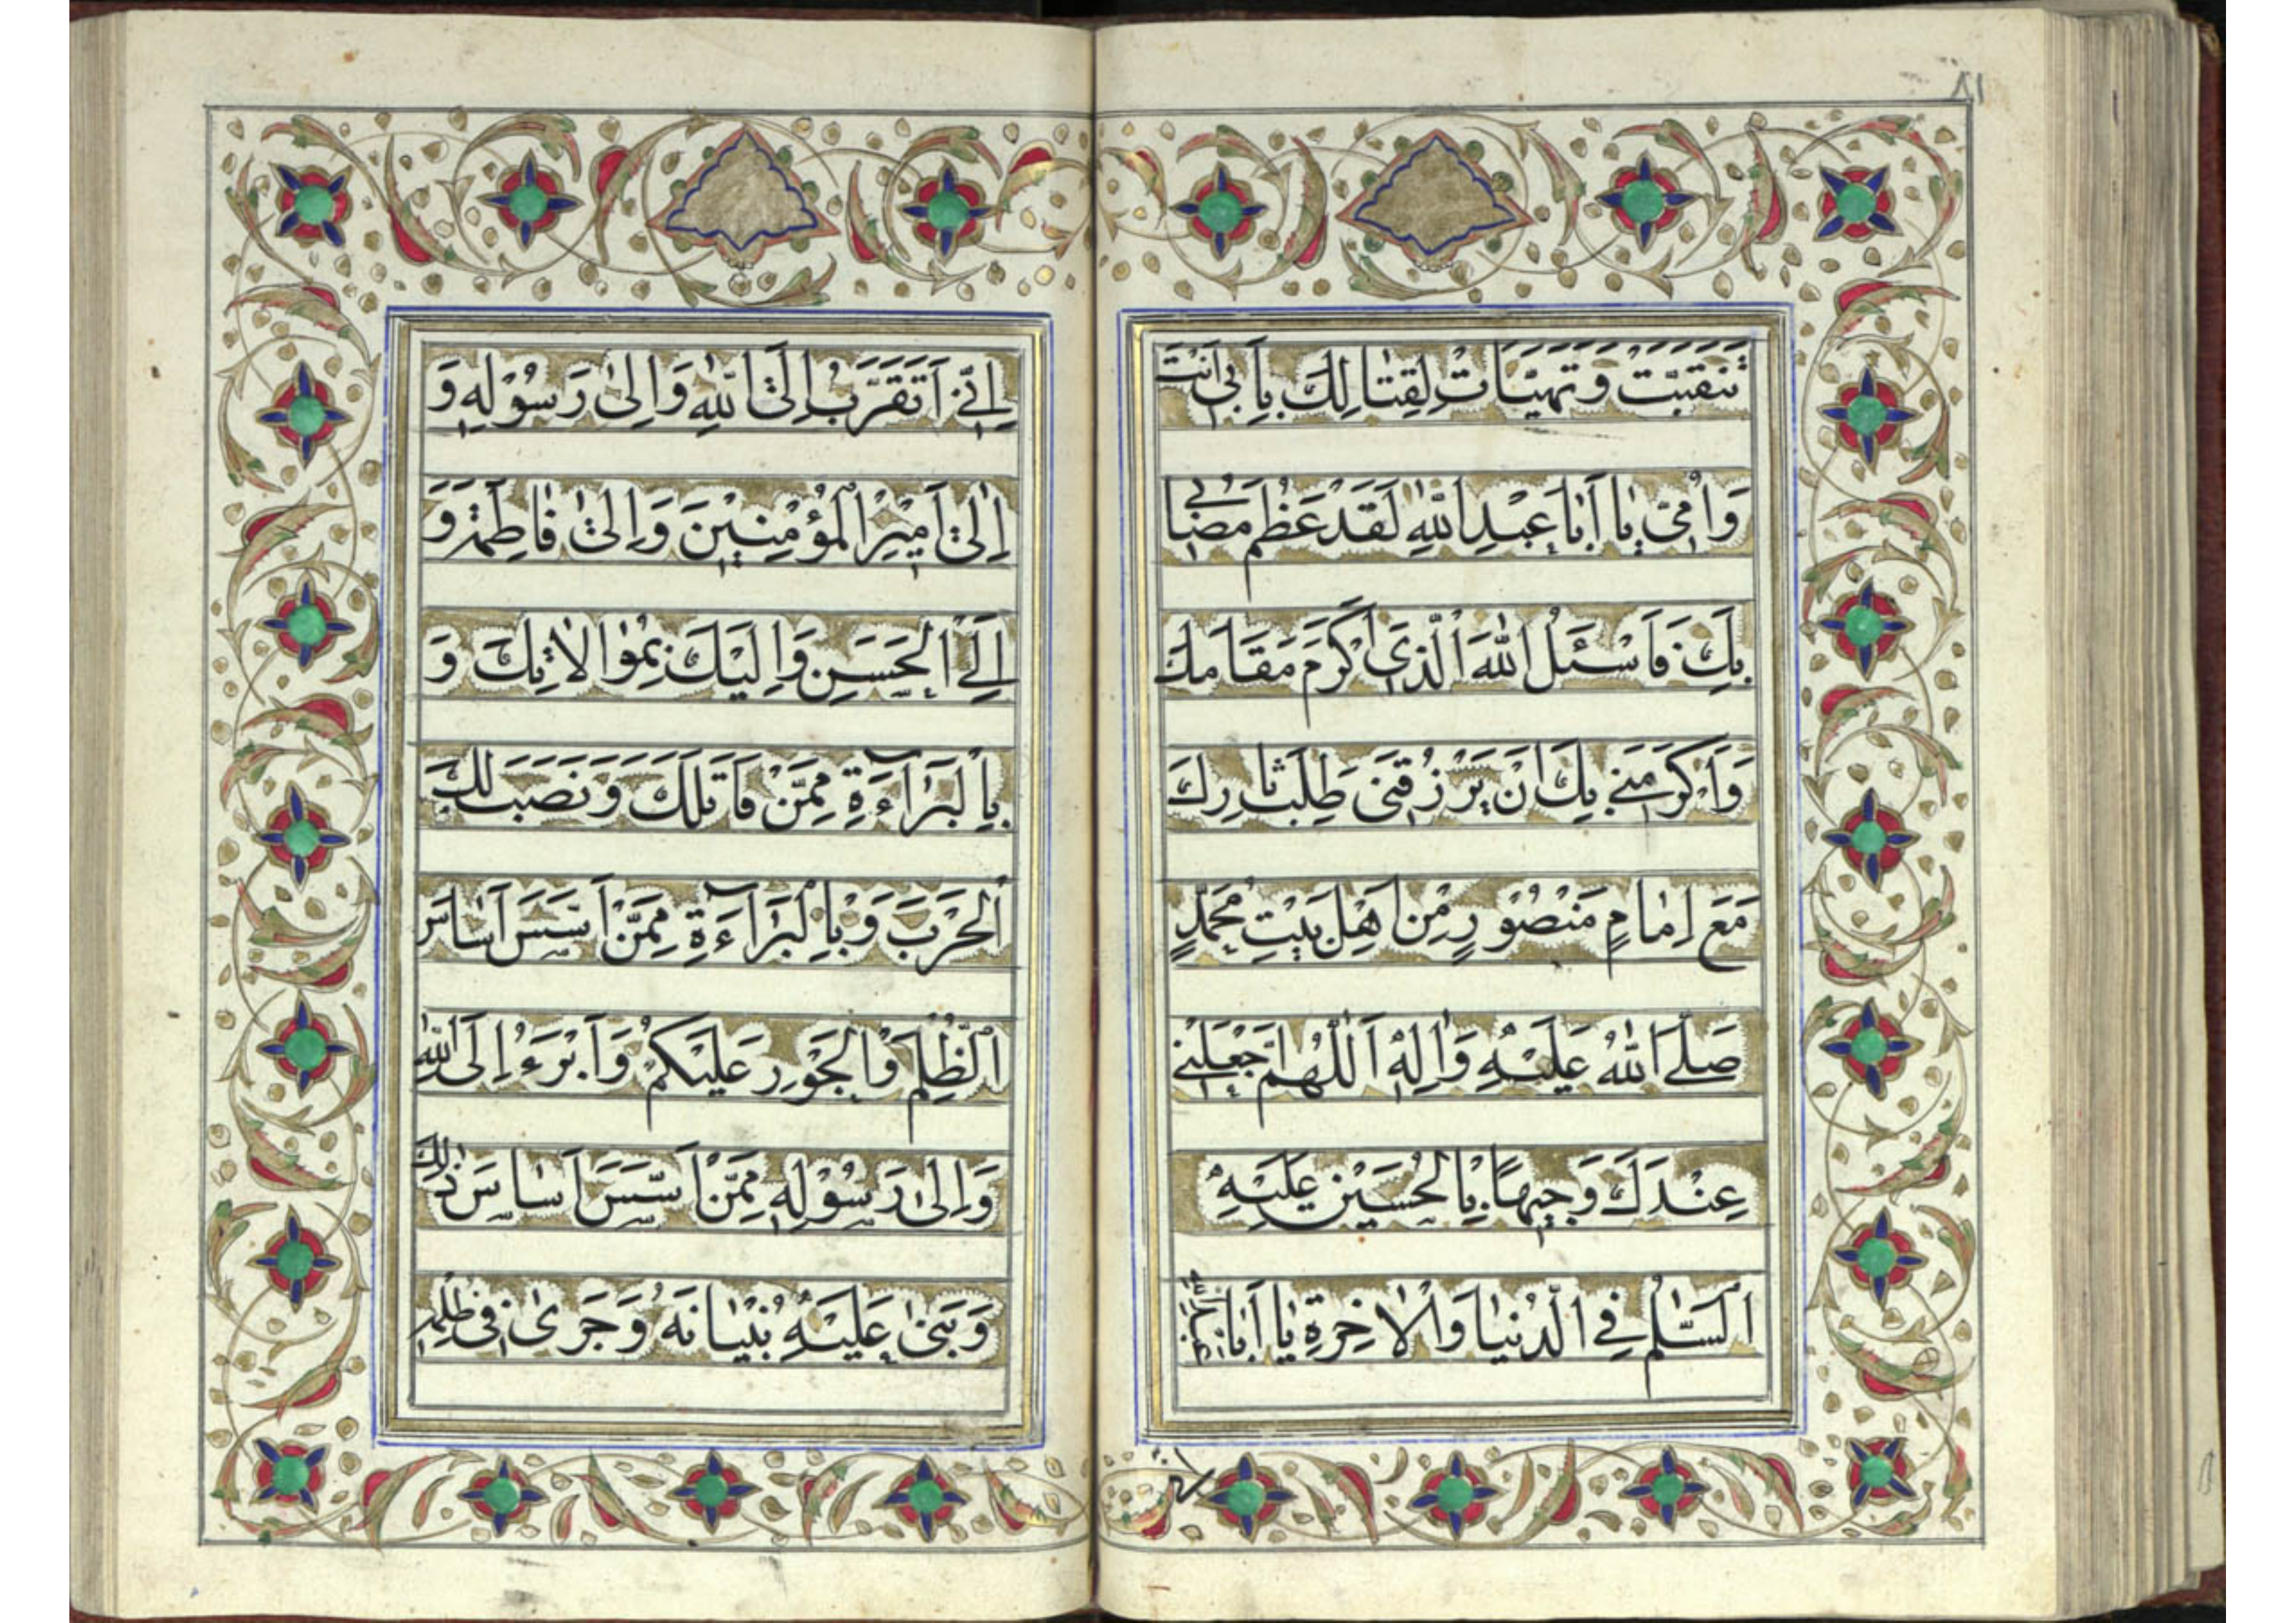 ٨١
تَنَقَّبَتْ وَتَهَيَّاَتْ لِقِتٰالِكَ بِاَبى اَنْتَ
وَاُمّى يٰا اَبٰا عَبْدِ اللّٰهِ لَقَدْ عَظُمَ مُصٰابى
بِكَ فَاَسْئَلُ اللّٰهَ الَّذى اَكْرَمَ مَقٰامَكَ
وَاَكْرَمَنى بِكَ اَنْ يَرْزُقَنى طَلَبَ ثٰارِكَ
مَعَ اِمٰامٍ مَنْصُوْرٍ مِنْ اَهْلِ بَيْتِ مُحَمَّدٍ
صَلَّى اللّٰهُ عَلَيْهِ وَاٰلِهِ اَللّٰهُمَّ اجْعَلْنى
عِنْدَكَ وَجيهًا بِالْحُسَيْنِ عَلَيْهِ
السَّلٰمُ فِى الدُّنْيٰا وَالْاٰخِرَةِ يٰا اَبٰا
اِنّى
اِنّى اَتَقَرَّبُ اِلَى اللّٰهِ وَاِلىٰ رَسُوْلِهِ وَ
اِلىٰ اَميْرِ الْمُؤْمِنيْنَ وَاِلىٰ فٰاطِمَةَ وَ
اِلَى الْحَسَنِ وَاِلَيْكَ بِمُوٰالاٰتِكَ وَ
بِالْبَرٰآءَةِ مِمَّنْ قٰاتَلَكَ وَنَصَبَ لَكَ
الْحَرْبَ وَبِالْبَرٰآءَةِ مِمَّنْ اَسَّسَ اَسٰاسَ
الظُّلْمِ وَالْجَوْرِ عَلَيْكُمْ وَاَبْرَءُ اِلَى اللّٰهِ
وَاِلىٰ رَسُوْلِهِ مِمَّنْ اَسَّسَ اَسٰاسَ ذٰلِكَ
وَبَنىٰ عَلَيْهِ بُنْيٰانَهُ وَجَرىٰ فى ظُلْمِهِ